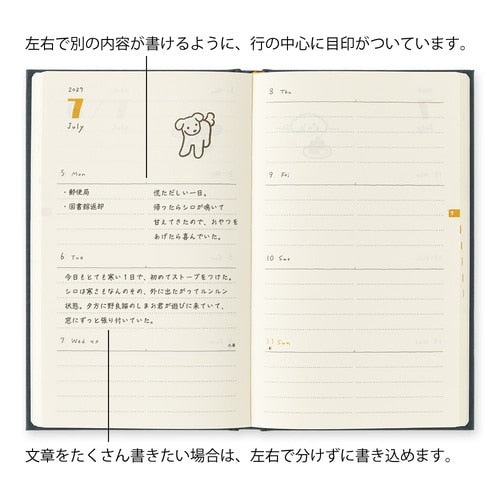 左右で別の内容が書けるように、行の中心に目印がついています。
7
July
5 Mon
・郵便局
・図書館返却
慌ただしい一日。
帰ったらシロが鳴いて
甘えてきたので、おやつを
あげたら喜んでいた。
6 Tue
今日もとても寒い1日で、初めてストーブをつけた。
シロは寒さもなんのその、外に出たがってルンルン
状態。夕方に野良猫のしまお君が遊びに来ていて、
窓にずっと張り付いていた。
7 Wed
8 Thu
9 Fri
10 Sat
11 Sun
文章をたくさん書きたい場合は、左右で分けずに書き込めます。